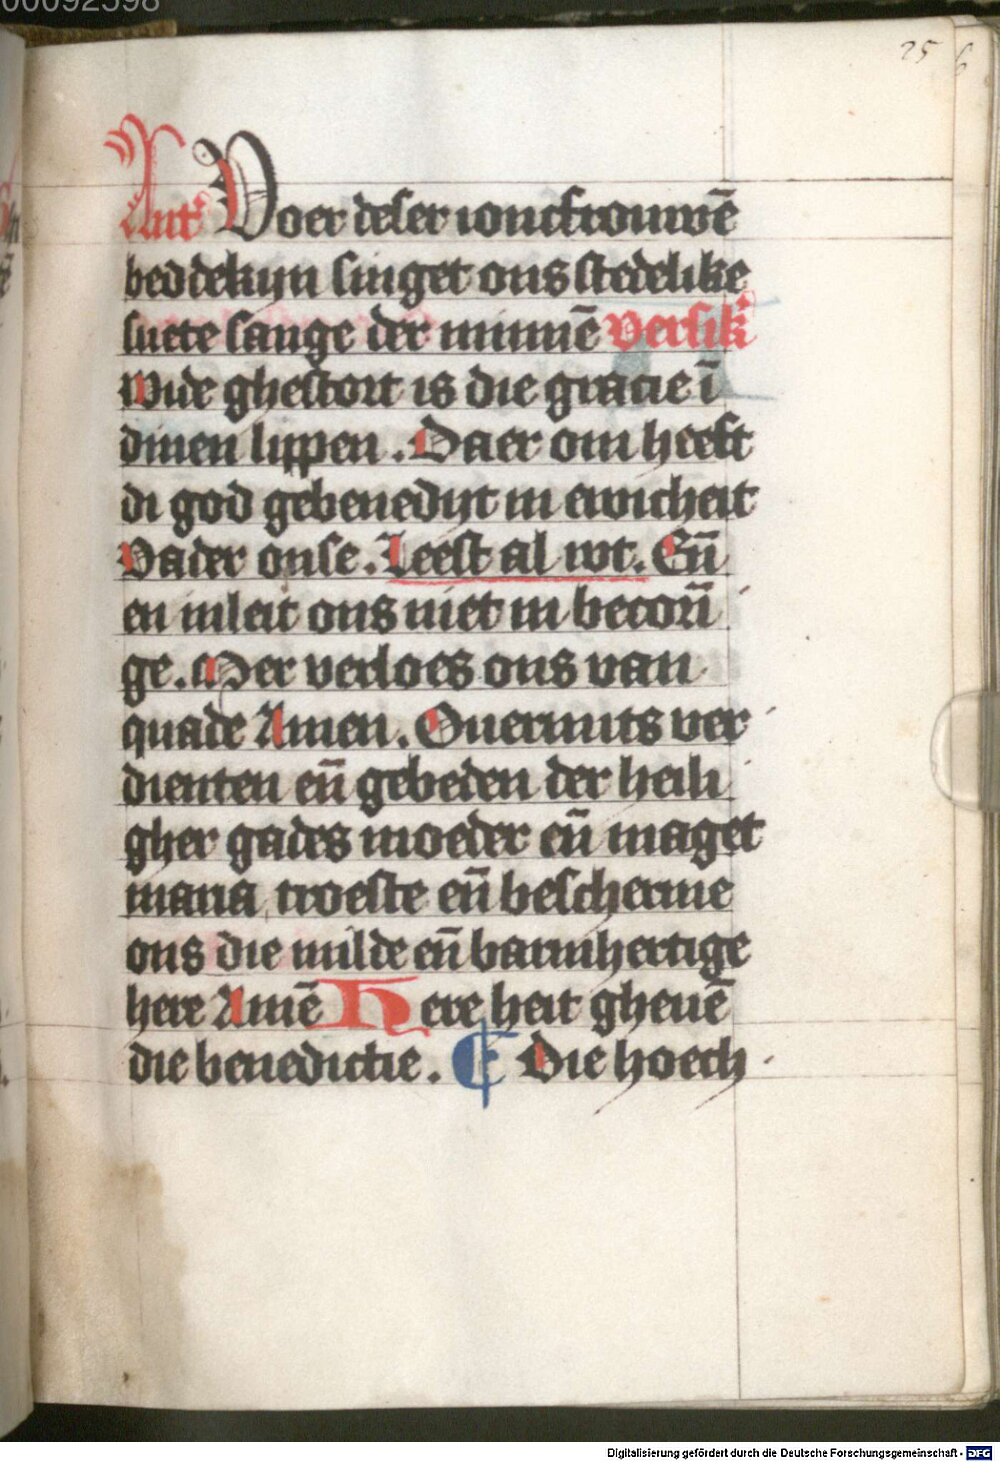 00092598
25
Ant Voer deser ionctrouwē
beddekijn singet ons stedelike
suete sange der minnē Versik
Wide ghestort is die gracie ī
dinen lippen. Daer om heeft
di god gebenedijt in ewicheit
Vader onse. Leest al wt. Eñ
en inleit ons niet in becorī
ge. Mer verloes ons van
quade Amen. Ouermits ver
dienten eñ gebeden der heili
gher gades moeder eñ maget
maria, troeste eñ bescherme
ons die milde eñ barmhertige
here Amē Here heit gheuē
die benedictie. Die hoech
Digitalisierung gefördert durch die Deutsche Forschungsgemeinschaft - DFG